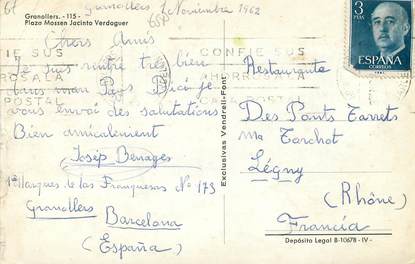 61
Granollers 2 Noviembre 1962
65P
Granollers. - 115 -
Plaza Mossen Jacinto Verdaguer
3
PTAS
ESPAÑA
CORREOS
Chers Amis
Je suis rentre tres bien
dans mon Pays D'ici je
vous envoi des salutations
Bien amicalement
Josep Benages
1º Marques de las Franquesas Nº 173
Granollers
Barcelona
(España)
CONFIE SUS
AHORROS A LA
POSTAL
Exclusivas Vendrell-Font
Restaurante
Des Ponts Tarrets
Mª Torchot
Légny
(Rhône)
Francia
Depósito Legal B-10678-IV-